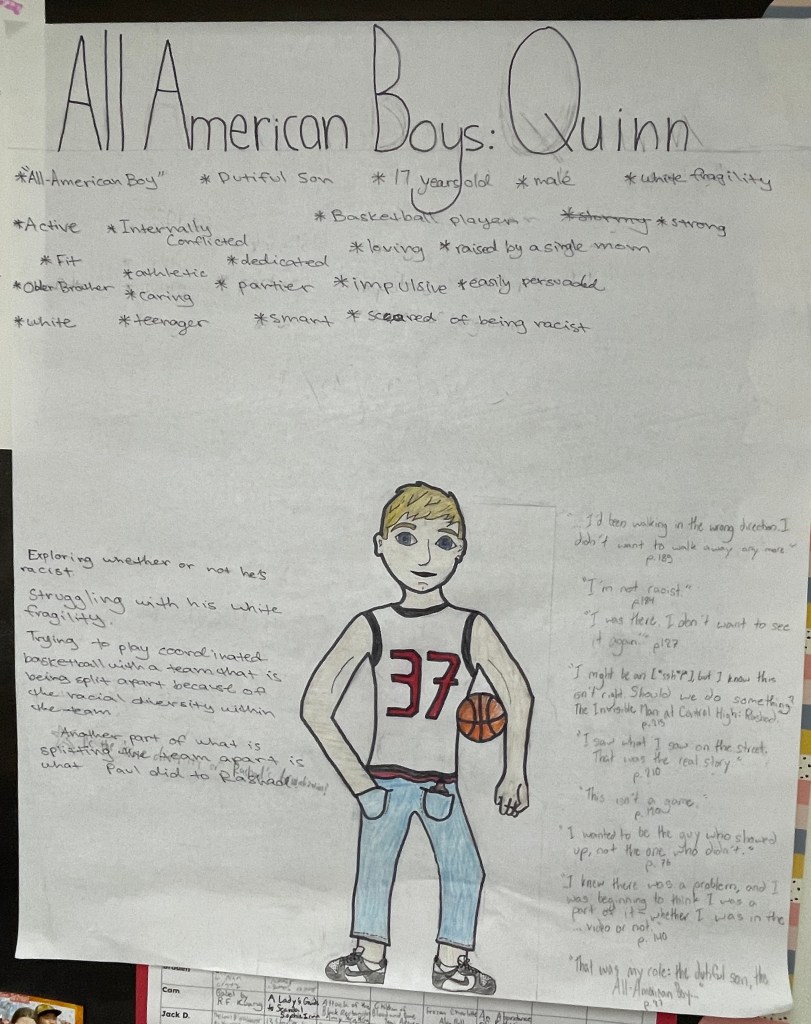 All American Boys: Quinn
*"All-American Boy" * Dutiful Son * 17 years old * male * white fragility
*Active * Internally Conflicted * Basketball player * stormy * strong
* Fit * athletic * dedicated * loving * raised by a single mom
* Older Brother * caring * partier * impulsive * easily persuaded
* white * teenager * smart * scared of being racist
Exploring whether or not he's
racist
Struggling with his white
fragility.
Trying to play coordinated
basketball with a team that is
being split apart because of
the racial diversity within
the team.
Another part of what is
splitting the team apart is
what Paul did to Rashad
37
"... I'd been walking in the wrong direction. I
didn't want to walk away any more"
p.185
"I'm not racist."
p.184
"I was there. I don't want to see
it again." p127
"I might be an
but I know this
isn't right. Should we do something?
The Invisible Man at Central High: Rashad.
"I saw what I saw on the street.
That was the real story"
p.210
"This isn't a game."
p.
"I wanted to be the guy who showed
up, not the one who didn't."
p. 76
"I knew there was a problem, and I
was beginning to think I was a
part of it - whether I was in the
... video or not."
p. 140
"That was my role: the dutiful son, the
All-American Boy..."
Cam
R.F. Kuang
A Lady's Guide
to Scandal
Sophie Irwin
Jack D.